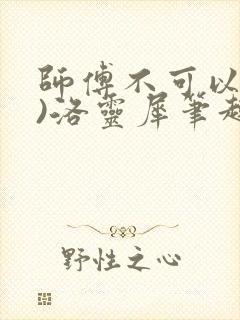 師傅不可以
)洛靈犀筆趣
野性之心